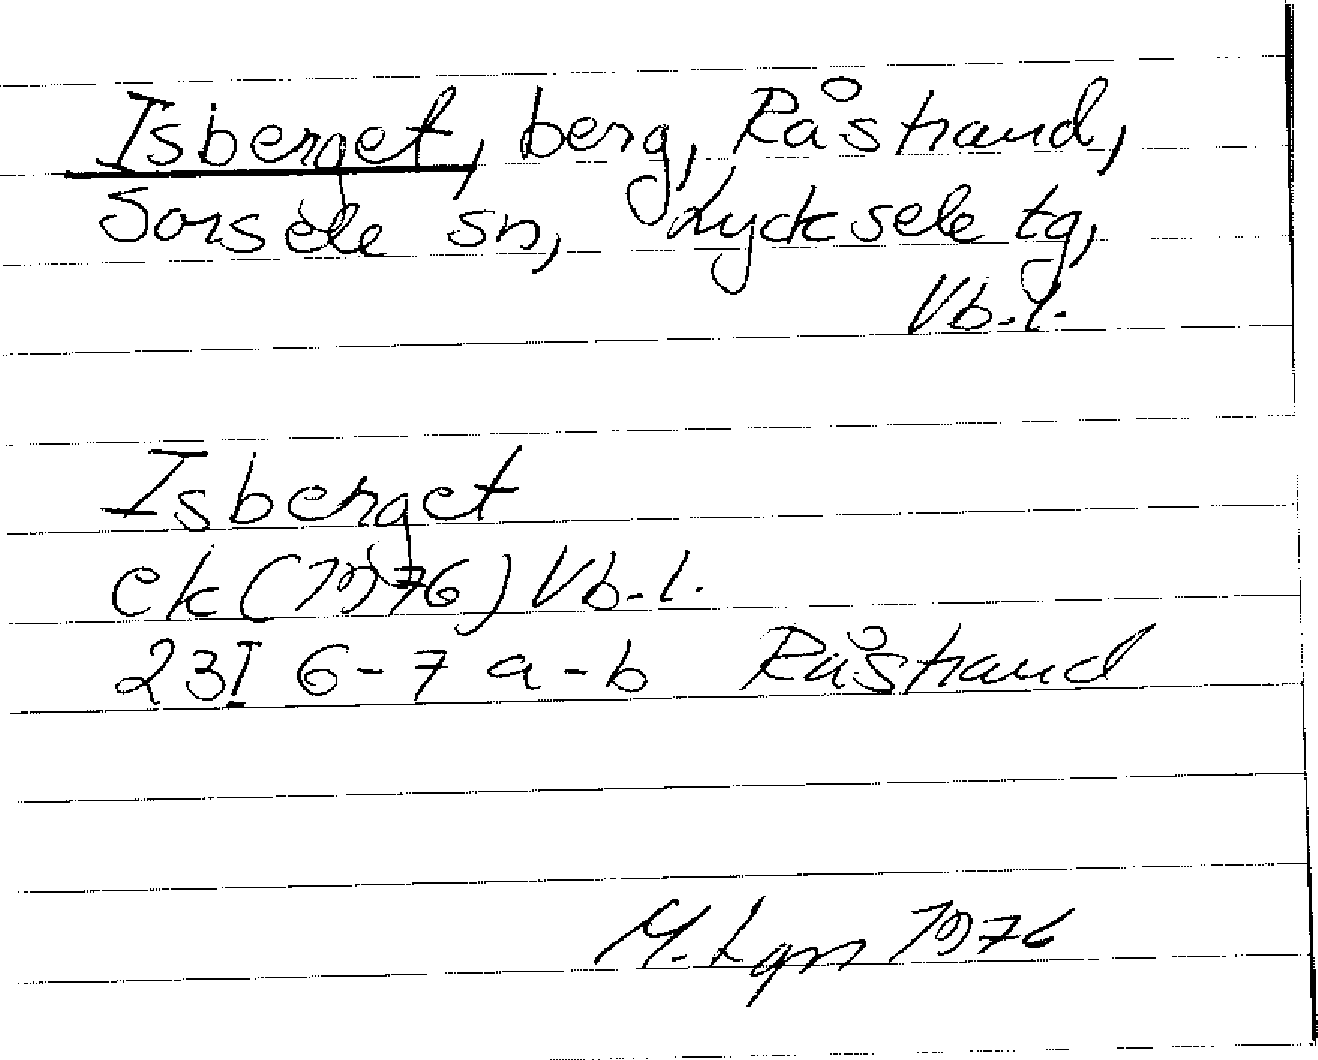 Isberget, berg, Råstrand,
Sorsele sn, Lycksele tg,
Vb.l.
Isberget
ek (1976) Vb.l.
23I 6-7 a-b Råstrand
M. Lgn 1976